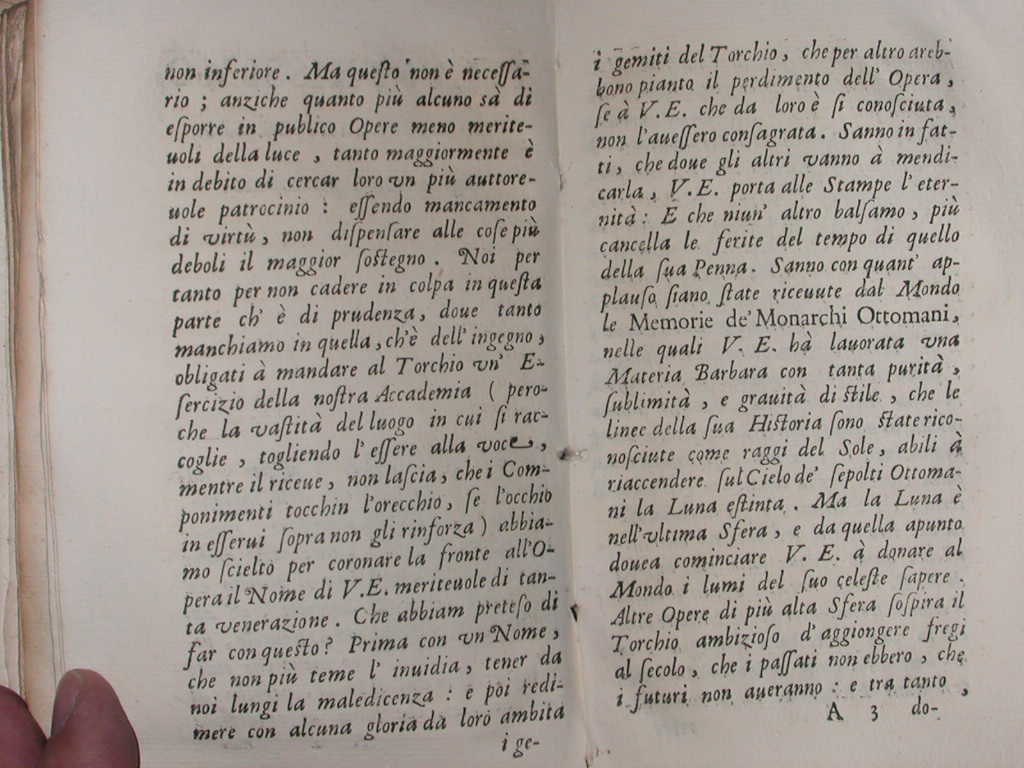 non inferiore. Ma queſto non è neceſſa-
rio; anziche quanto più alcuno sà di
eſporre in publico Opere meno merite-
uoli della luce, tanto maggiormente è
in debito di cercar loro vn più auttore-
uole patrocinio: eſſendo mancamento
di virtù, non diſpenſare alle coſe più
deboli il maggior ſoſtegno. Noi per
tanto per non cadere in colpa in queſta
parte ch' è di prudenza, doue tanto
manchiamo in quella, ch'è dell' ingegno,
obligati à mandare al Torchio vn' E-
ſercizio della noſtra Accademia (pero-
che la vaſtità del luogo in cui ſi rac-
coglie, togliendo l'eſſere alla voce,
mentre il riceue, non laſcia, che i Com-
ponimenti tocchin l'orecchio, ſe l'occhio
in eſſerui ſopra non gli rinforza) abbia-
mo ſcielto per coronare la fronte all'O-
pera il Nome di V.E. meriteuole di tan-
ta venerazione. Che abbiam preteſo di
far con queſto? Prima con vn Nome,
che non più teme l' inuidia, tener da
noi lungi la maledicenza: e poi redi-
mere con alcuna gloria da loro ambita
i ge-
i gemiti del Torchio, che per altro areb-
bono pianto il perdimento dell' Opera,
ſe à V.E. che da loro è ſi conoſciuta,
non l'aueſſero conſagrata. Sanno in fat-
ti, che doue gli altri vanno à mendi-
carla, V.E. porta alle Stampe l' eter-
nità: E che niun' altro balſamo, più
cancella le ferite del tempo di quello
della ſua Penna. Sanno con quant' ap-
plauſo ſiano ſtate riceuute dal Mondo
le Memorie de' Monarchi Ottomani,
nelle quali V. E. hà lauorata vna
Materia Barbara con tanta purità,
ſublimità, e grauità di ſtile, che le
linee della ſua Hiſtoria ſono ſtate rico-
noſciute come raggi del Sole, abili à
riaccendere ſul Cielo de' ſepolti Ottoma-
ni la Luna eſtinta. Ma la Luna è
nell'vltima Sfera, e da quella apunto
douea cominciare V. E. à donare al
Mondo i lumi del ſuo celeſte ſapere.
Altre Opere di più alta Sfera ſoſpira il
Torchio ambizioſo d' aggiongere fregi
al ſecolo, che i paſſati non ebbero, che
i futuri non aueranno: e tra tanto,
A 3 do-